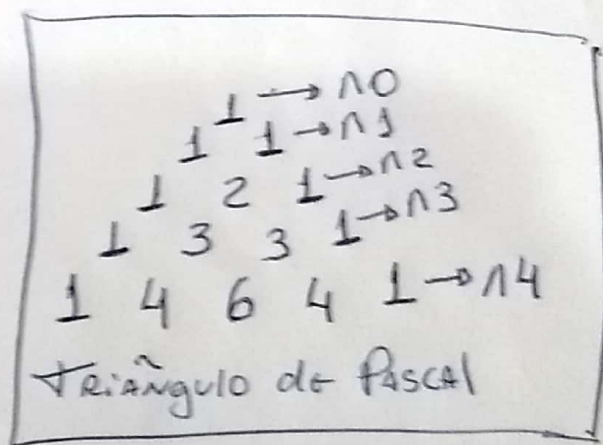 1 → n0
1 1 → n1
1 2 1 → n2
1 3 3 1 → n3
1 4 6 4 1 → n4
TRiÃNgulo de PASCAl